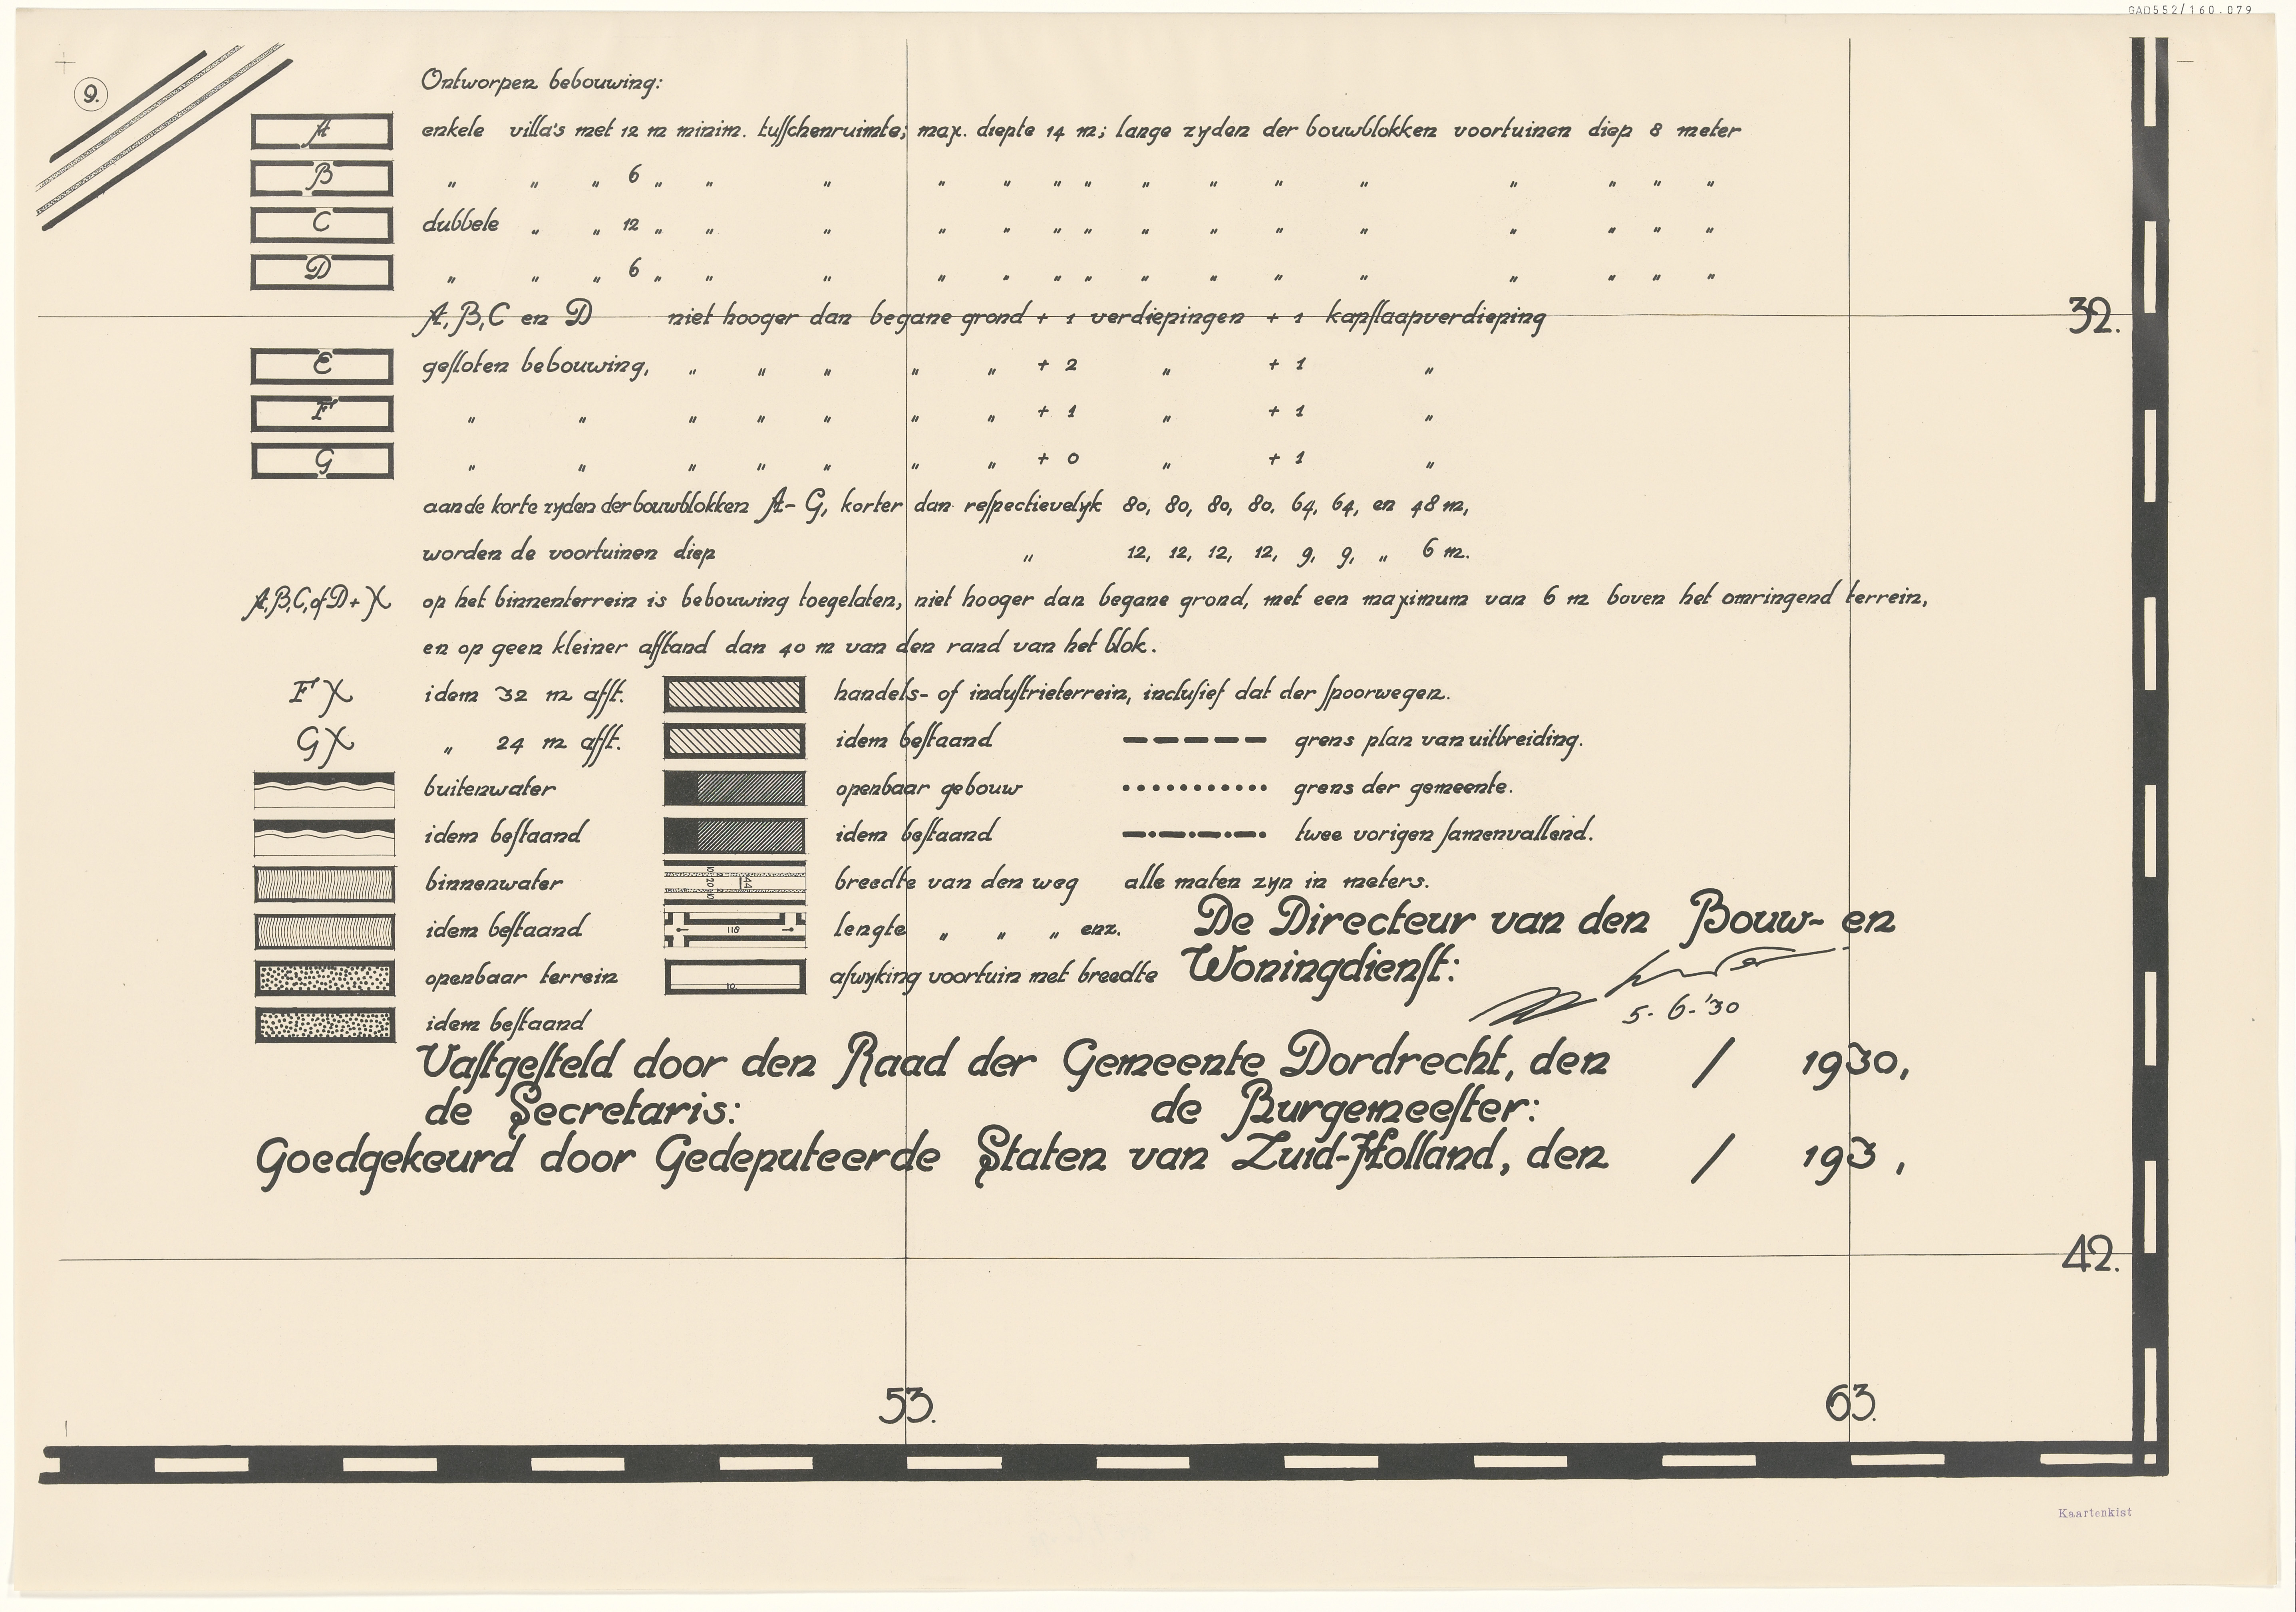 GAD552/160.079
9.
Ontworpen bebouwing:
A enkele villa's met 12 m minim. tuſſchenruimte; max. diepte 14 m; lange zyden der bouwblokken voortuinen diep 8 meter
B „ „ „ 6 „ „ „ „ „ „ „ „ „ „ „ „ „ „ „
C dubbele „ „ 12 „ „ „ „ „ „ „ „ „ „ „ „ „ „ „
D „ „ „ 6 „ „ „ „ „ „ „ „ „ „ „ „ „ „ „
A, B, C en D niet hooger dan begane grond + 1 verdiepingen + 1 kapſlaapverdieping
32.
E geſloten bebouwing, „ „ „ „ „ + 2 „ + 1 „
F „ „ „ „ „ „ „ + 1 „ + 1 „
G „ „ „ „ „ „ „ + 0 „ + 1 „
aan de korte zyden der bouwblokken A- G, korter dan reſpectievelyk 80, 80, 80, 80, 64, 64, en 48 m,
worden de voortuinen diep „ 12, 12, 12, 12, 9, 9, „ 6 m.
A,B,C, of D + X op het binnenterrein is bebouwing toegelaten, niet hooger dan begane grond, met een maximum van 6 m boven het omringend terrein,
en op geen kleiner afſtand dan 40 m van den rand van het blok.
F X idem 32 m afſt. handels- of induſtrieterrein, incluſief dat der ſpoorwegen.
G X „ 24 m afſt. idem beſtaand grens plan van uitbreiding.
buitenwater openbaar gebouw grens der gemeente.
idem beſtaand idem beſtaand twee vorigen ſamenvallend.
binnenwater 10 20 10 44 breedte van den weg alle maten zyn in meters.
idem beſtaand 118 lengte „ „ „ enz. De Directeur van den Bouw- en
openbaar terrein 10 afwyking voortuin met breedte Woningdienſt:
5-6-'30
idem beſtaand
Vaſtgeſteld door den Raad der Gemeente Dordrecht, den / 1930,
de Secretaris: de Burgemeeſter:
Goedgekeurd door Gedeputeerde Staten van Zuid-Holland, den / 193 ,
42.
53. 63.
Kaartenkist